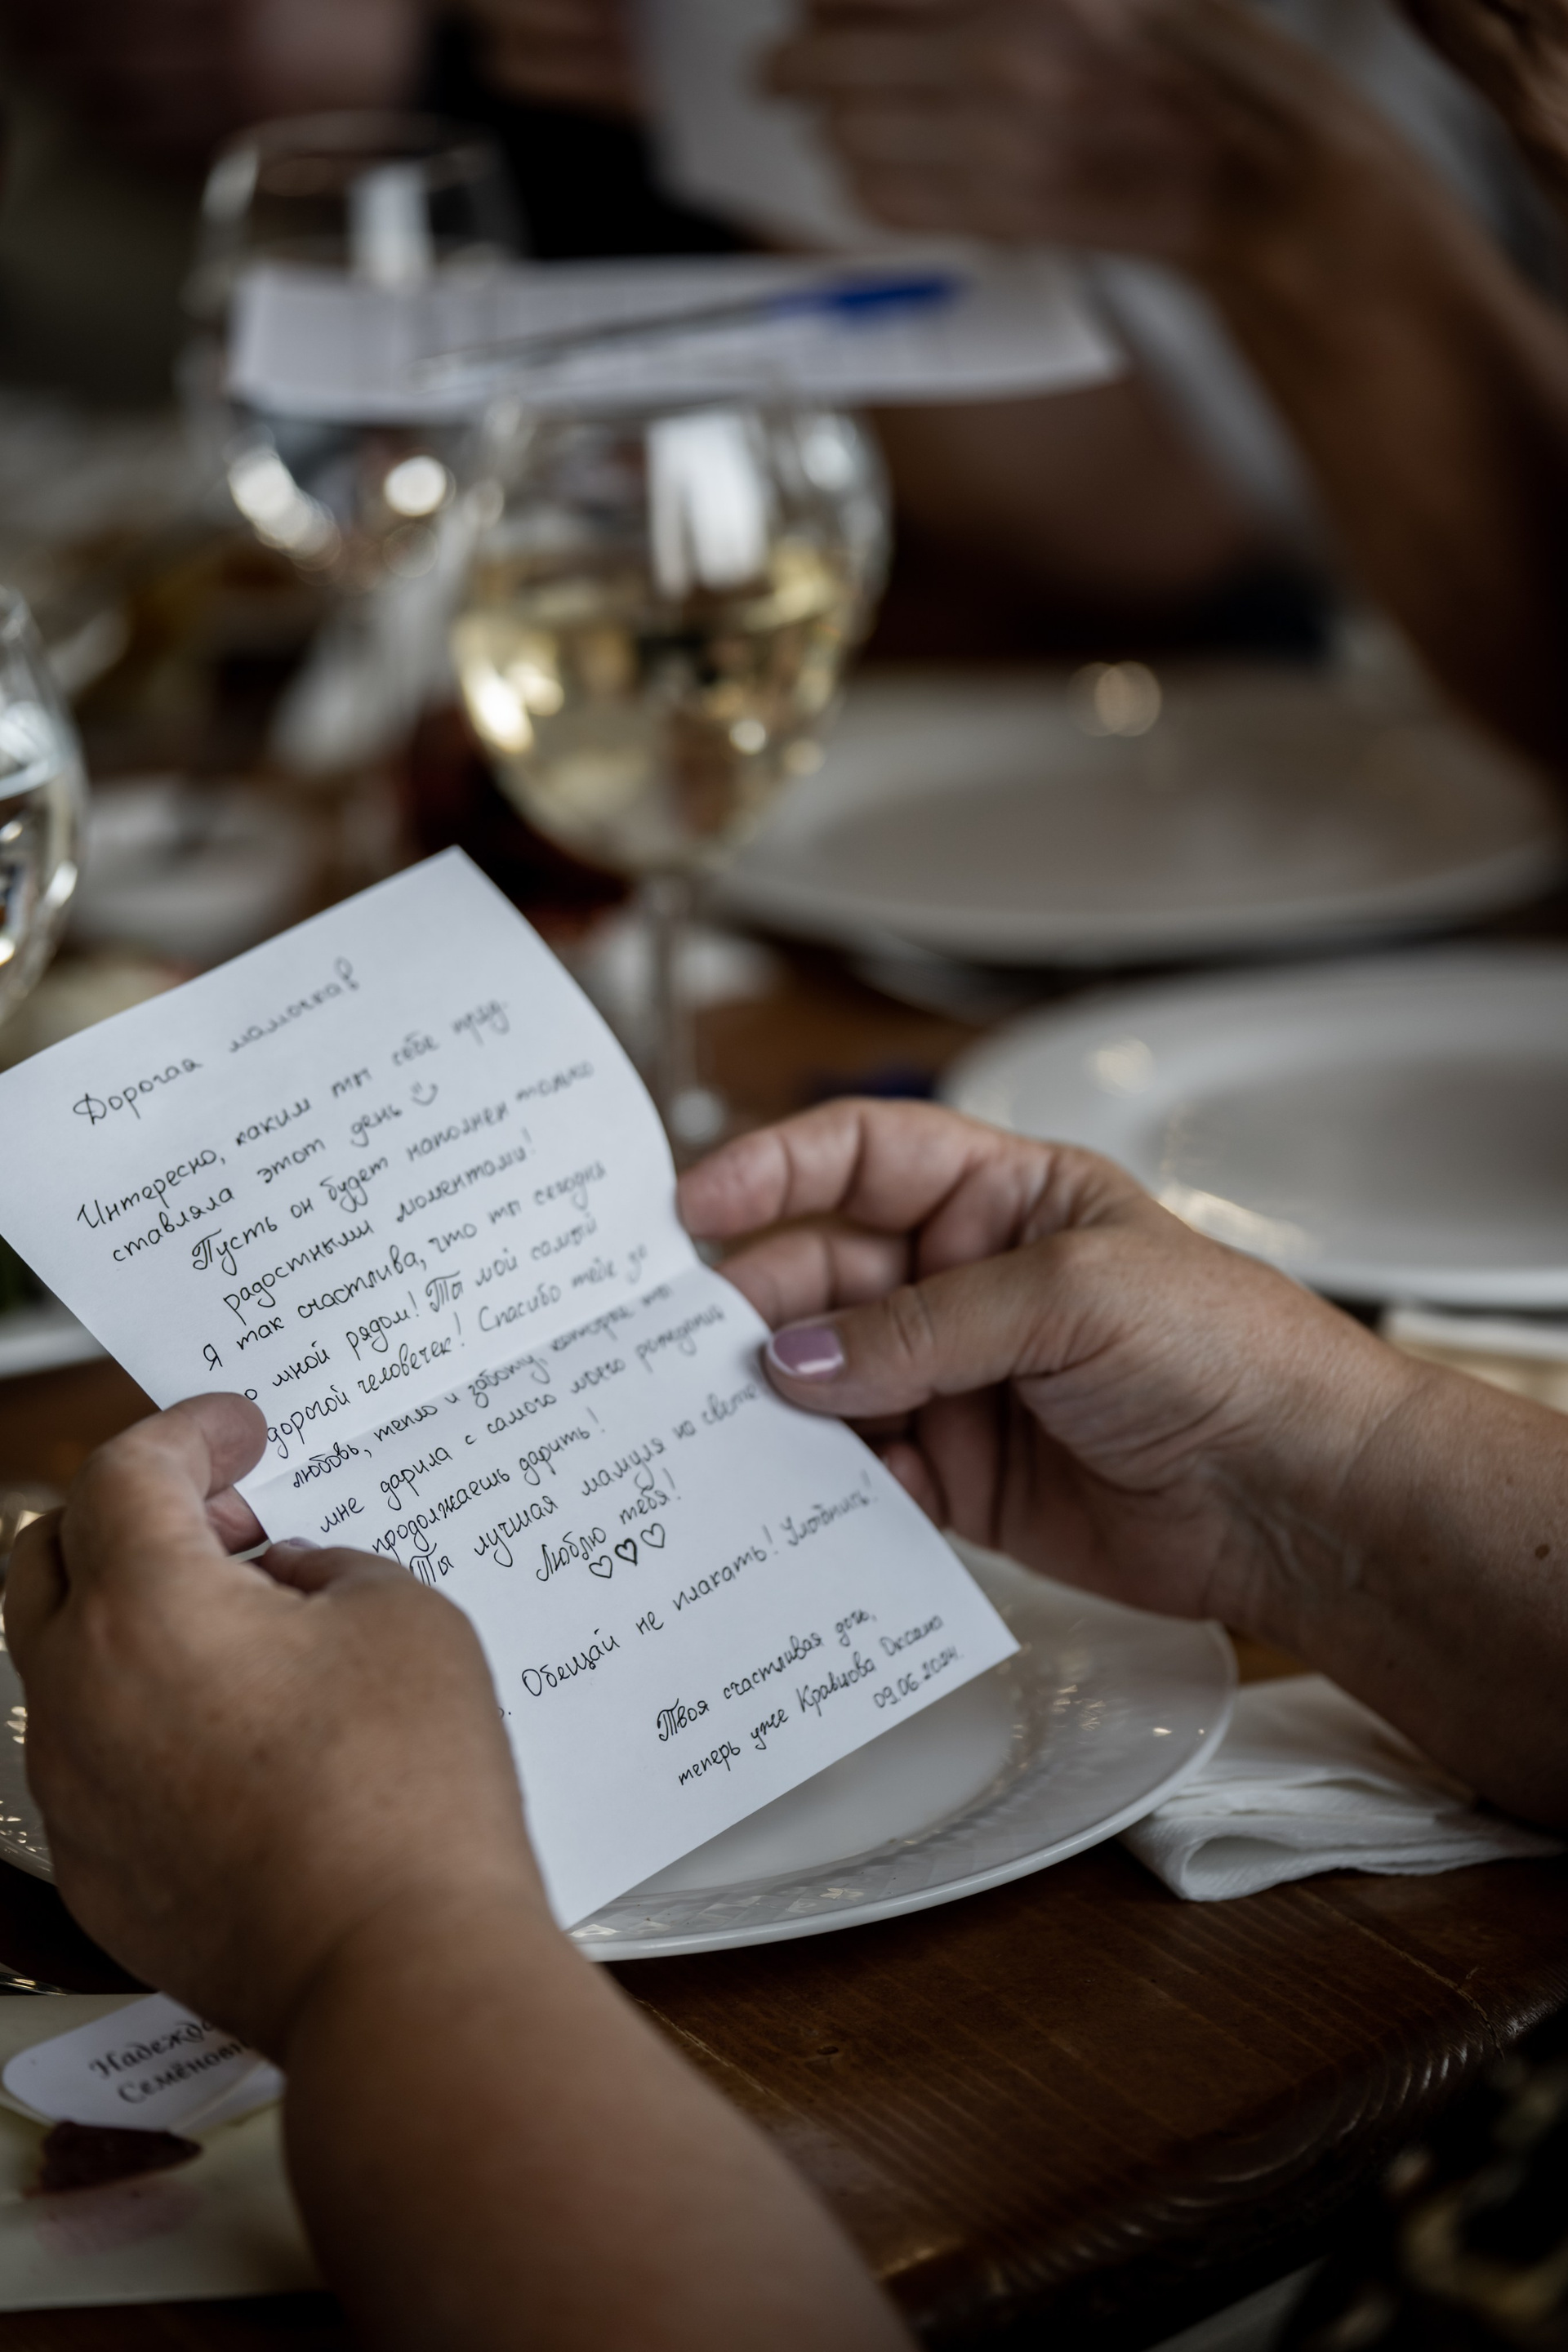 Дорогая мамочка
Интересно, каким ты себе пред-
ставляла этот день
Пусть он будет наполнен только
радостными моментами!
Я так счастлива, что ты сегодня
со мной рядом! Ты мой самый
дорогой человечек! Спасибо тебе за
любовь, тепло и заботу, которые ты
мне дарила с самого моего рождения
продолжаешь дарить!
Ты лучшая мамуля на свете
Люблю тебя!
♡♡♡
Обещай не плакать! Улыбнись!
Твоя счастливая дочь,
теперь уже Кравцова Оксана
09.06.2024.
Надежда
Семёнов